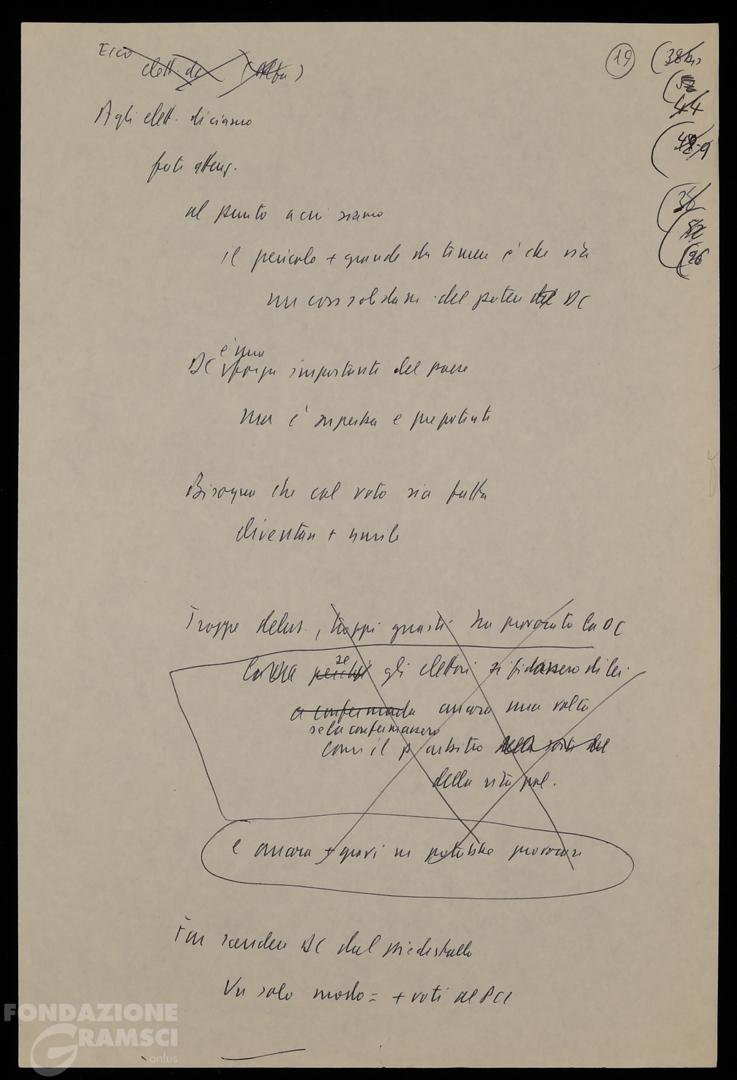 19
44
26
Agli elett. diciamo
fate attenz.
al punto a cui siamo
il pericolo + grande da temere è che sia
un consolidam. del potere DC
è una
DC forza importante del paese
ma è superba e prepotente
Bisogna che col voto sia fatta
diventare + umile
Troppe delus., troppi guasti ha provocato la DC
se
perché gli elettori si fidassero di lei
a confermarla ancora una volta
se la confermassero
come il p. arbitro
della vita pol.
e ancora + gravi ne potrebbe provocare
Far scendere DC dal piedistallo
Un solo modo = + voti al PCI
FONDAZIONE
GRAMSCI
onlus